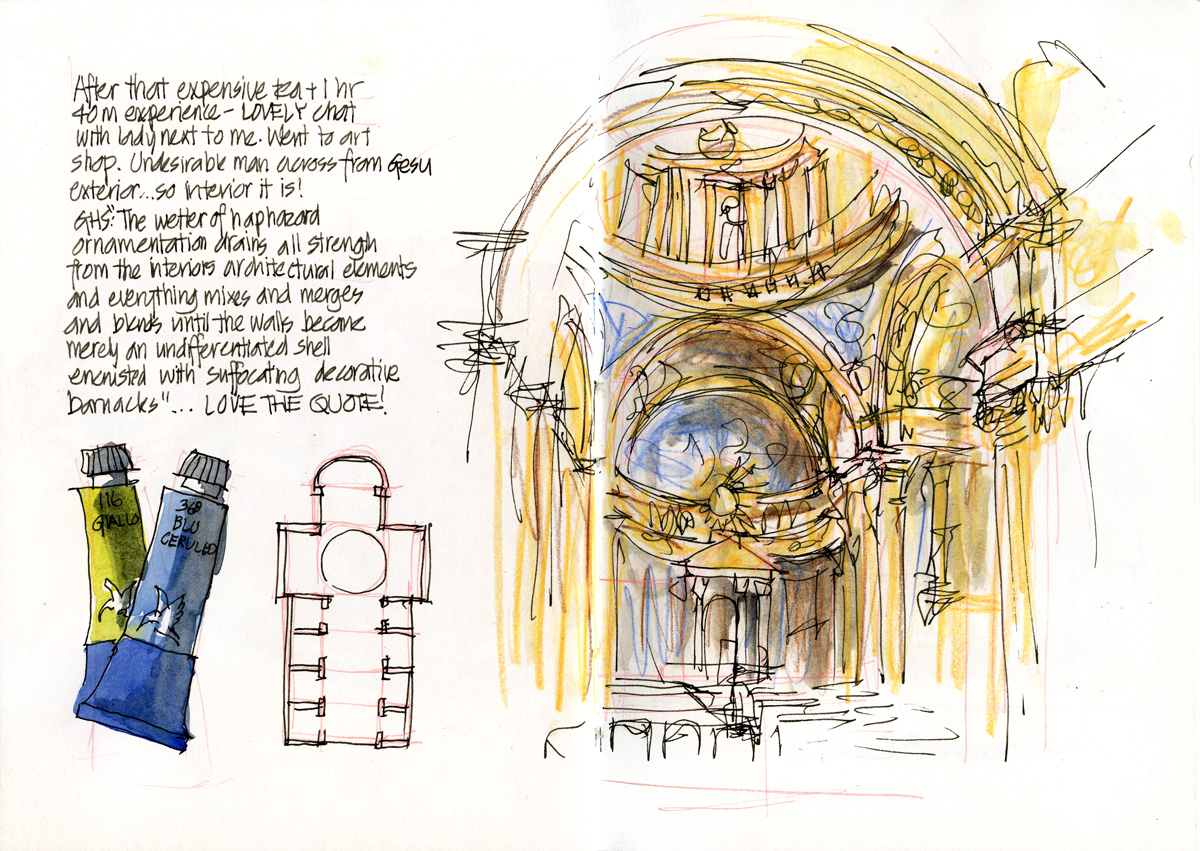 After that expensive tea + 1 hr
40m experience - LOVELY chat
with lady next to me. Went to art
shop. Undesirable man across from Gesu
exterior...so interior it is!
GHS: "The welter of haphazard
ornamentation drains all strength
from the interiors architectural elements
and everything mixes and merges
and blends until the walls become
merely an undifferentiated shell
encrusted with suffocating decorative
barnacks"... LOVE THE QUOTE!
116
GIALLO
368
BLU
CERULEO